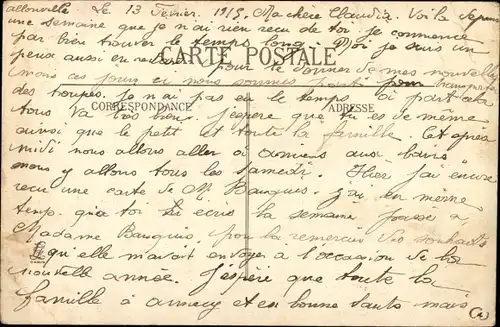 allonville Le 13 Février 1915 Ma chère Claudia. Voila depuis
une semaine que je n'ai rien recu de toi je commence
par bien trouver le temps long. Moi je suis un
peux aussi en retard pour te donner de mes nouvelle
mais ces jours ci nous sommes pour transporter
CARTE POSTALE
des troupes. Je n'ai pas eu le temps a part cela
CORRESPONDANCE ADRESSE
tous va très bien. j'espère que tu es de même
ainsi que le petit et toute la famille. Cet après
midi nous allons aller à amiens aux bains
nous y allons tous les samedi. Hier j'ai encore
recu une carte de M. Bauquis. j'ai en même
temp. qu'a toi lui écris la semaine passée a
Madame Bauquis. pour la remercier des souhaits
qu'elle m'avait envoyer à l'occasion de la
nouvelle année. J'éspère que toute la
famille à annecy et en bonne santé mais